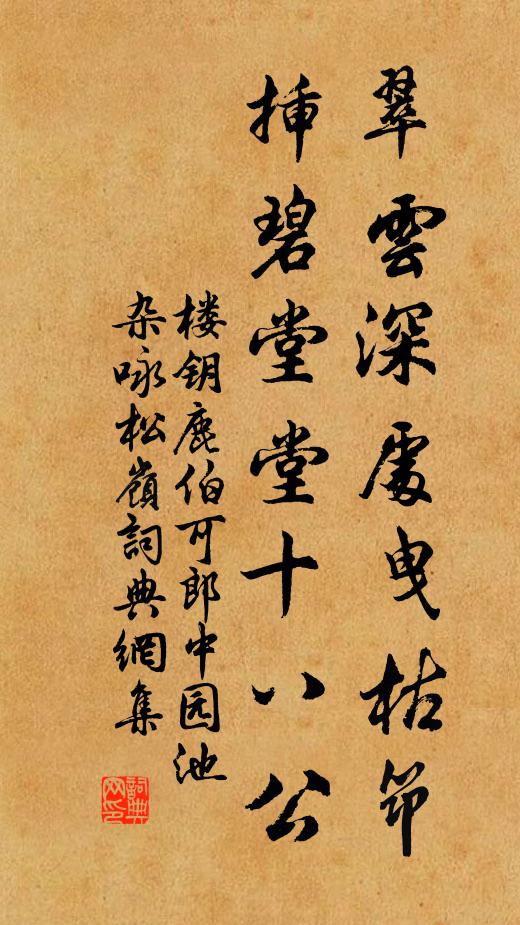 翠雲深處曳枯筇
挿碧堂堂十八公
楼钥鹿伯可郎中园池
杂咏松嶺詞典網集
詞典
网印